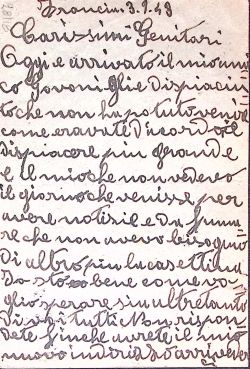 3.1.43
Carissimi Genitori
Oggi e arrivato il mio ami
co Govoni Glie dispiaciu
to che non ha potuto venire
come eravate d'acordo il
dispiacere piu grande
e il mio che non vedevo
il giorno che venisse per
avere notisie e da fuma
re che non avevo bisogno
di altro in la casettina
Io sto bene come vo
glio sperare sia altretanto
di voi tutti Non rispon
dete finche avrete il mio
nuovo indirisso